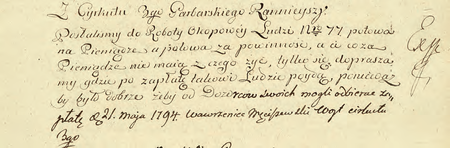 Z Cyrkułu 3go Garbarskiego Rannieysz:
Posłaliśmy do Roboty Okopowéy Ludzi Nro 77 połowa
na Pieniądze a połowa za powinność, a ci co za
Pieniądze nie maią czego żyć, tylko się doprasza
my gdzie po zapłatę takowi Ludzie poydą, ponieważ
by było dobrze żeby od Dozorców swoich mogli odbierac za
płatę d. 21. maja 1794. Wawrzeniec Woyt cirkułu
3go
Exp